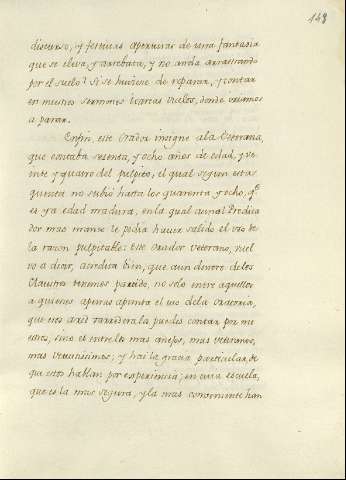 148
discurso, y festivas aperturas de una fantasia
que se eleva, y arrebata, y no anda arrastrando
por el suelo? Si se huviese de reparar, y contar
en nuestros sermones semejantes vuelos, donde iriamos
a parar.
Enfin, este Orador insigne ala Veterana,
que contaba sesenta, y ocho años de edad, y ve-
inte y quatro del pulpito, el qual segun esta
quenta no subió hasta los quarenta y ocho, q.e
es ya edad madura, en la qual aun al Predica
dor mas manso le podia haver salido el uso de
la razon pulpitable: Este Orador veterano, vuel
vo a decir, acredita bien, que aun dentro delos
Claustros tenemos partido, no solo entre aquellos
a quienes apenas apunta el uso dela oratoria,
que eso a red barredera la puedes contar por nu
estros, sino es entre los mas añejos, mas veteranos,
mas veteranisimos; y hai la gracia particular, de
que estos hablan por experiencia; en cuia escuela,
que es la mas segura, y la mas concerniente han